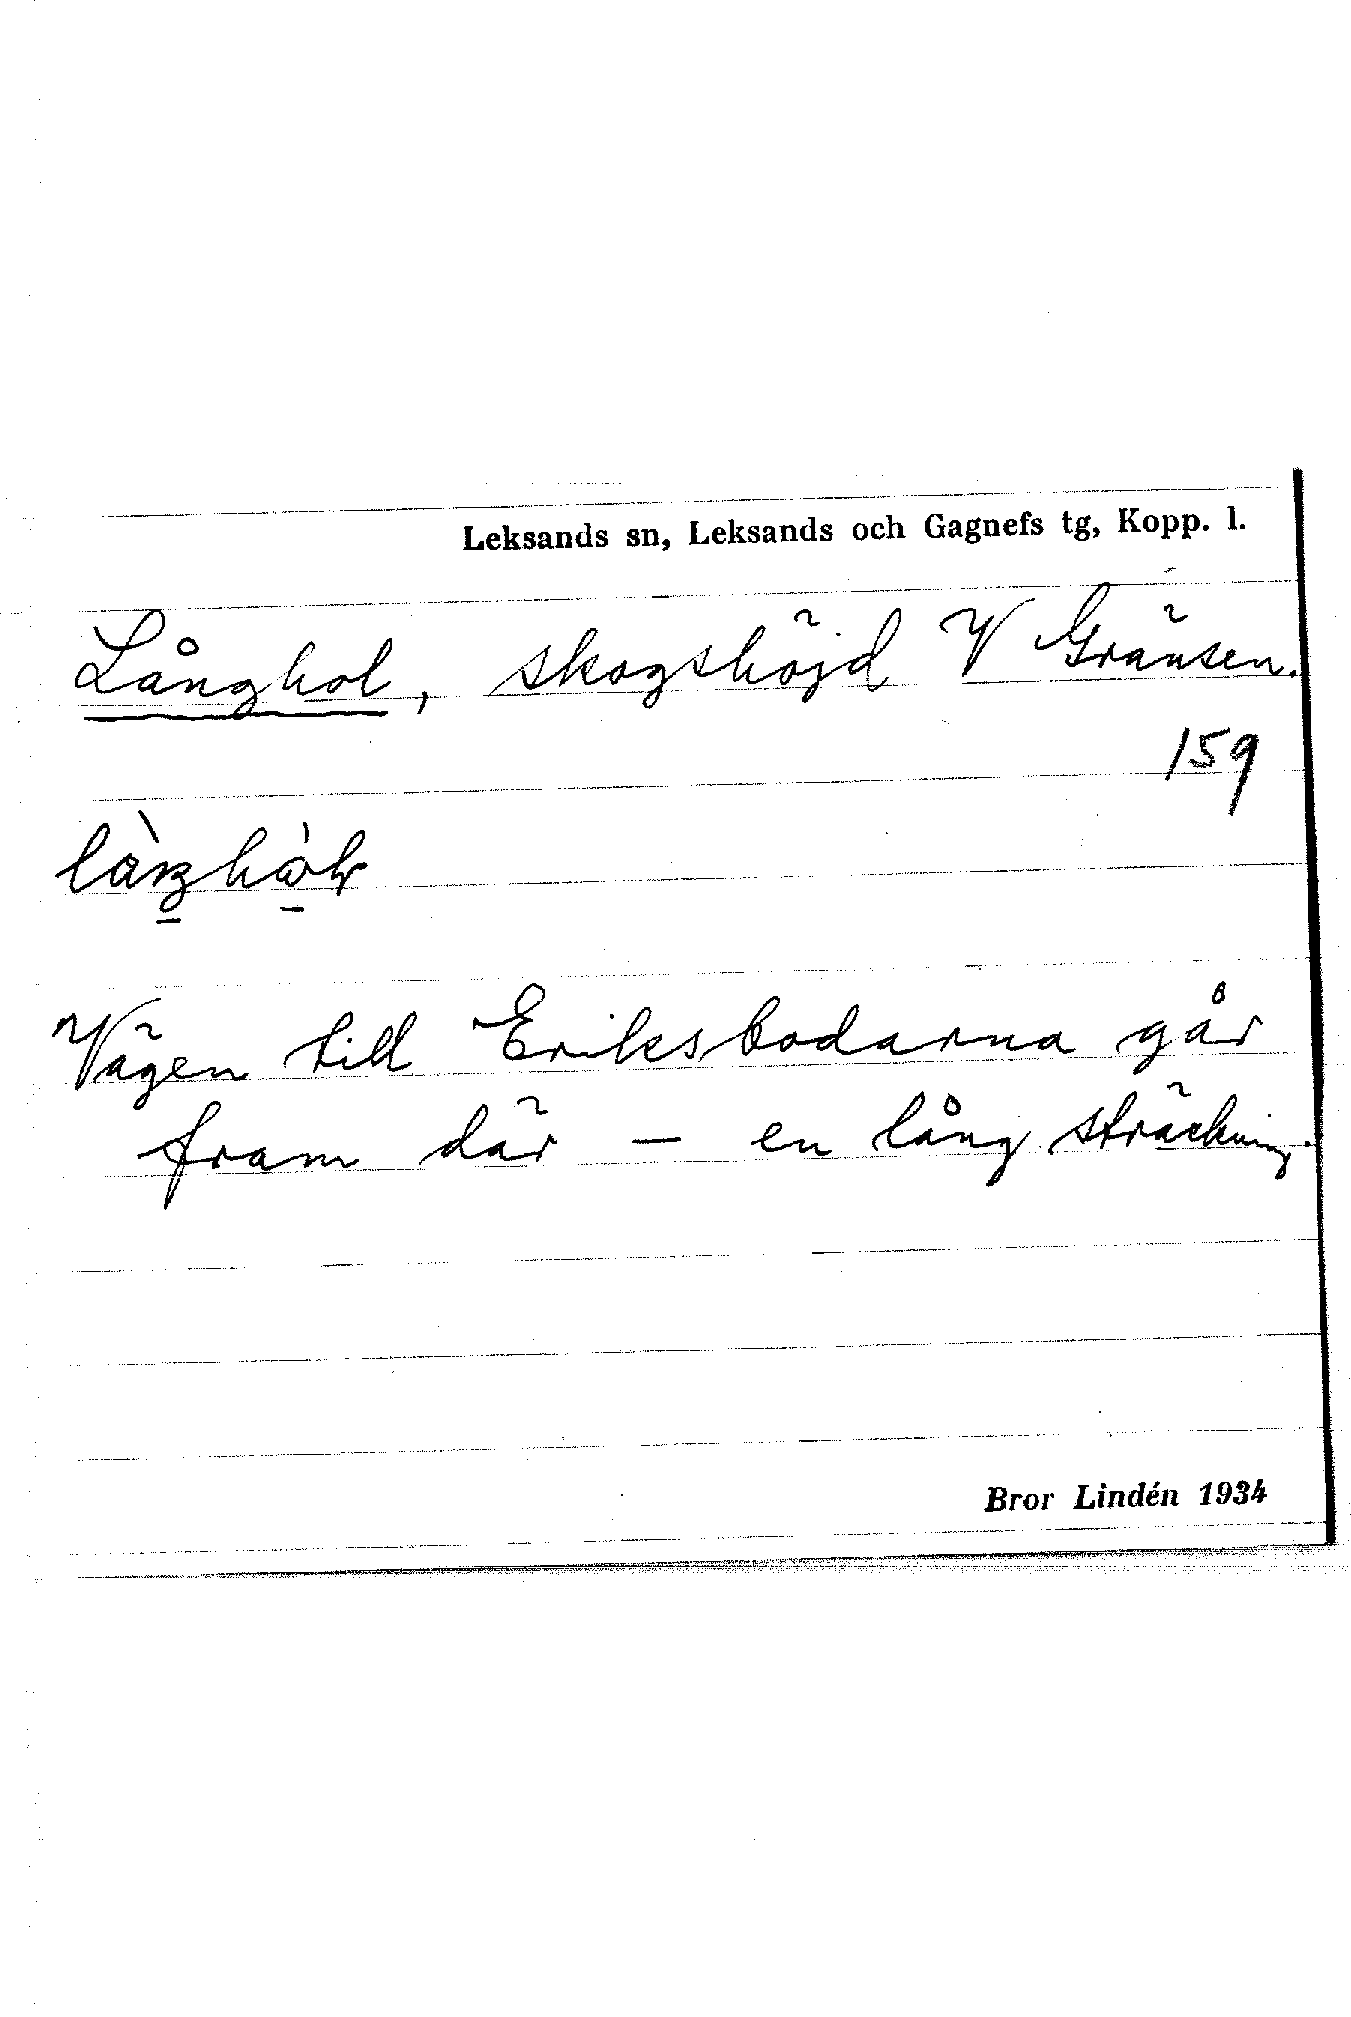 Leksands sn, Leksands och Gagnefs tg, Kopp. l.
Långhol, skogshöjd V Gränsen.
159
Vägen till Eriksbodarna går
fram där — en lång sträckning.
Bror Lindén 1934